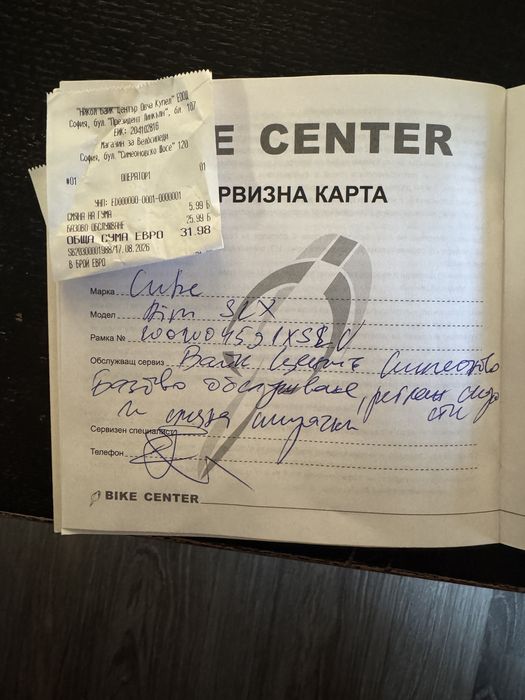 "Никол Байк Център Овча Купел" ЕООД
София, бул. "Президент Линкълн", бл. 107
ЕИК: 204102816
Магазин за Велосипеди
София, бул. "Симеоновско Шосе" 120
#01 ОПЕРАТОР1 01
УНП: ED000000-0001-0000001
СМЯНА НА ГУМА 5.99 Б
БАЗОВО ОБСЛУЖВАНЕ 25.99 Б
ОБЩА СУМА ЕВРО 31.98
17.08.2026
В БРОИ ЕВРО
E CENTER
РВИЗНА КАРТА
Марка Cube
Модел SLX
Рамка №
Обслужващ сервиз Байк Център Симеоново
Базово обслужване,
и смяна спирачки
Сервизен специалист
Телефон
BIKE CENTER